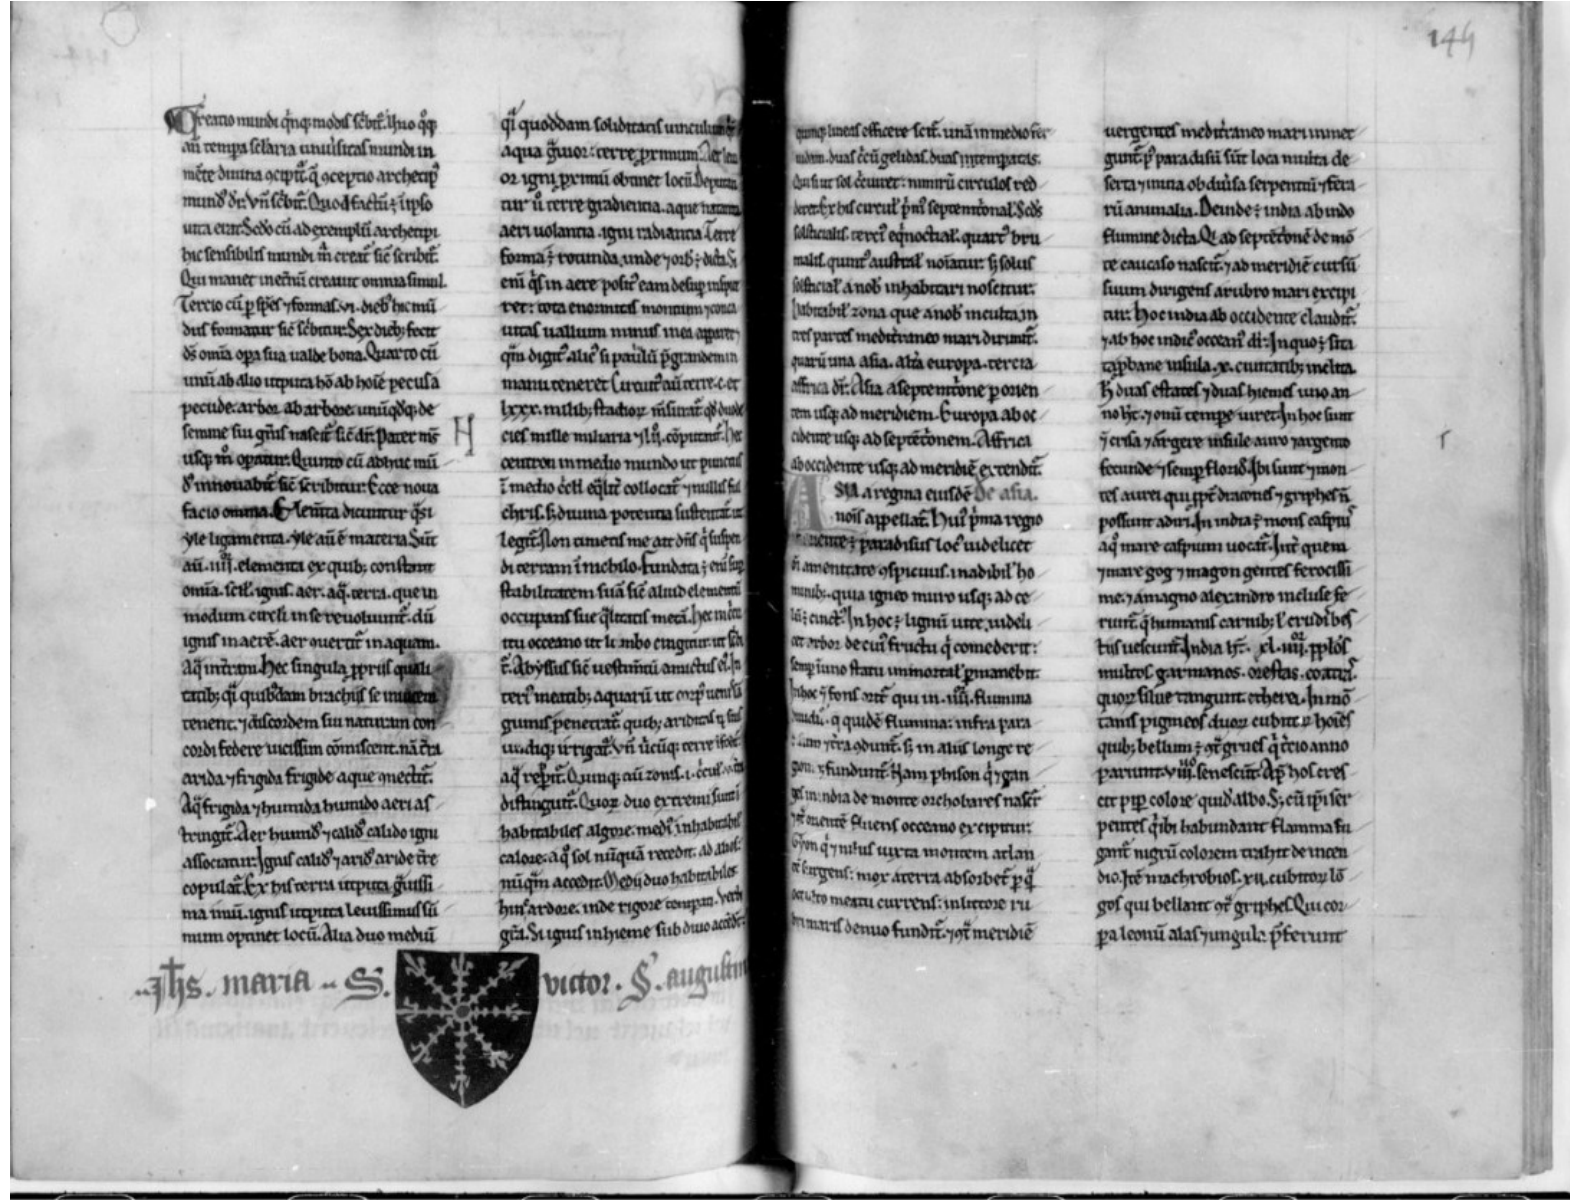 Creatio mundi q̄nq; modis sc̄bit̃. Uno q̊q;
añ tempa sclaria uniuersitas mundi in
mēte diuina ꝯcipit̃. q̄ ꝯceptio archetipꝰ
mundꝰ dr̃. Vñ sc̄bit̃. Quod factū ē in ipso
uita erat. Scd̊o cū ad exemplū archetipi
hic sensibilis mundꝰ ī mā creat̃ sic̃ scribit̃.
Qui manet inet̃nū creauit omnia simul.
Tercio cū ꝑ sp̄es ⁊ formas .vi. diebꝰ hic mū
dus formatur sic̃ sc̄bitur. Sex dieb; fecit
d̄s om̄ia oꝑa sua ualde bona. Quarto cū
unū ab alio utputa hō ab hoīe pecus a
pecude. arbor ab arbore. unūq̊dq; de
semine sui gñis nascit̃ sic̃ dr̃. Pater m̄s
usq; m̊ oꝑatur. Quinto cū adhuc mū
dꝰ innouabit̃ sic̃ scribitur. Ecce noua
facio omnia. Elem̃ta dicuntur q̄si
yle ligamenta. yle aū ē materia. Sūt
aū .iiii. elementa ex quib; constant
om̄ia. scil. ignis. aer. aq̄. terra. que in
modum circli in se reuoluunt̃. dū
ignis in aerē. aer ꝯuertit̃ in aquam.
Aq̄ in t̃ram. Hec singula ꝓpriis quali
tatib; q̄i quibꝰdam brachiis se inuicem
tenent. ⁊ discordem sui naturam con
cordi federe uicissim cōmiscent. nā t̃ra
arida ⁊ frigida frigide aque ꝯnectit̃.
Aq̄ frigida ⁊ humida humido aeri as
tringit̃. Aer humidꝰ ⁊ calidꝰ calido igni
associatur. Ignis calidꝰ ⁊ aridꝰ aride t̃re
copulat̃. Ex his terra utputa g̃uissi
ma imū. ignis utputa leuissimus sū
mum optinet locū. Alia duo mediū
H
q̄i quoddam soliditatis uinculum
aqua g̃uior: terre ꝓximum. Aer leui
or igni ꝓximū obtinet locū. Deputan
tur ũ terre gradiencia. aque natancia
aeri uolantia. igni radiantia. Terre
forma ē rotunda. unde ⁊ orbꝰ ē dicta. Si
eni q̄s in aere positꝰ eam desup inspice
ret: tota enormitas montium ⁊ conca
uitas uallium minus in ea appareret
q̄m digitꝰ alicꝰ si pauilū p̄grandem in
manu teneret. Circuitꝰ aū terre .c. et
lxxx. milib; stadior̃ m̃surat̃ qd̊ duode
cies mille miliaria ⁊ lii. cōputant̃. Hec
centron in medio mundo ut punctus
ī medio circli eq̄lit̃ collocat̃ ⁊ nullis ful
chris. s; diuina potentia sustentat̃. ut
legit̃. Non timetis me ait dñs q̄ suspen
di terram ī nichilo. Fundata ē enī suꝑ
stabilitatem suā sic̃ aliud elementū
occupans sue q̄litatis metā. Hec in circu
itu occeano ut limbo cingitur. ut scbi
t̃. Abyssus sic̃ uestimtū amictus eꝰ. In
teriꝰ meatib; aquarū ut corpꝰ uenis sā
guinis penetrat̃. quib; ariditas ei suis
undiq; irrigat̃. vñ ub̃cūq; terre ifodit̃
aq̄ reꝑit̃. Quinq; aū zonis .i. circul
distinguit̃. Quor̃ duo extremi sunt ī
habitabiles algore. mediꝰ inhabitabil
calore. a q̊ sol nūquā recedit. ab aliis
nūq̄m accedit. Medii duo habitabiles
hinc ardore. inde rigore temperati. Verbi
gr̃a. Si ignis in hieme sub diuo accēdet̃
„ihs. maria „ S. victor. S. augustin
149
quinq; lineas efficere scit̃. unā in medio fer
uidam. duas circū gelidas. duas intemp̃atas.
Qui si ut sol circuiret: nimirū circulos red
deret. Ex his circul̃ p̄mꝰ septemt̃onal. Scd̊s
solsticialis. tercꝰ eq̄noctial. quartꝰ bru
malis. quintꝰ austral̃ noīatur. s; solus
solsticial̃ a nob̃ inhabitari noscitur.
Habitabil̃ zona que a nob̃ incolit̃. in
tres partes medit̃raneo mari dirimit̃.
quarū una asia. alt̃a europa. tercia
affrica dr̃. Asia a septemt̃one ꝑ orien
tem usq; ad meridiem. Europa ab oc
cidente usq; ad septēt̃onem. Affrica
ab occidente usq; ad meridiē extendit̃.
ASIA a regina eiusdē De asia.
nōis appellat̃. Huiꝰ p̄ma regio
oriente ē paradisus locꝰ uidelicet
oī amenitate ꝯspicuus. inadibil̃ ho
minib;. quia igneo muro usq; ad ce
lū ē cinctꝰ. In hoc ē lignū uite. uideli
cet arbor de cuiꝰ fructu q̄ comederit:
semp in uno statu immortal̃ ꝑmanebit.
In hoc ⁊ fons oritꝰ qui in .iiii. flumina
diuidit̃. q quidē flumina: infra para
disum t̃ra ꝯdunt̃. s; in aliis longe re
gion. effundunt̃. Nam phison q̄ ⁊ gan
ges in india de monte orchobares nascit̃
⁊ ꝯt̃ orientē fluens occeano excipitur.
Gyon q̄ ⁊ nilus iuxta montem atlan
tē surgens: mox a terra absorbet̃. ꝑ q̄
occulto meatu currens: in littore ru
bri maris denuo fundit̃. ⁊ ꝯt̃ meridiē
uergentes medit̃raneo mari inmer
gunt̃. P̊ paradisū sūt loca multa de
serta ⁊ inuia ob diũsa serpentiū ⁊ fera
rū animalia. Deinde ē india ab indo
flumine dicta. Q ad septēt̃onē de mō
te caucaso nascit̃. ⁊ ad meridiē cursū
suum dirigens a rubro mari excipi
tur. Hoc india ab occidente claudit̃.
⁊ ab hoc indicꝰ occeanꝰ dr̃. In quo ē sita
taprbane insula .x. ciuitatib; inclita.
H̄ duas estates ⁊ duas hiemes uno an
no h̄t. ⁊ omī tempe uiret. In hoc sunt
⁊ crisa ⁊ argere insule auro ⁊ argento
fecunde ⁊ semp floridꝰ. Ibi sunt ⁊ mon
tes aurei qui ꝓpt̃ dracones ⁊ griphes n̄
possunt adiri. In india ē mons caspiꝰ
a q̊ mare caspium uocat̃. Int̃ quem
⁊ mare gog ⁊ magog gentes ferocissi
me. ⁊ a magno alexandro incluse fe
runt̃. q̄ humanis carnib; l̃ crudꝰ bes
tiis uescunt̃. India h̄t. xl. iiii. ppl̃os
multos garmanos. orestas. coatrꝰ.
quor̃ silue tangunt ethera. In mō
tanis pigmeos duor̃ cubitor̃ hoīes
quib; bellum ē ꝯt̃ grues q̄ t̃cio anno
pariunt. viii. senescūt. Apꝰ hos cres
cit pipꝰ colore quidē albo. S; cū ip̄i ser
pentes q̄ ibi habundant flamma fu
gant̃ nigrū colorem trahit de incen
dio. Itē machrobios .xii. cubitor̃ lō
gos qui bellant ꝯt̃ griphes. Qui cor
ꝑa leonū alas ⁊ ungulꝰ p̄ferunt